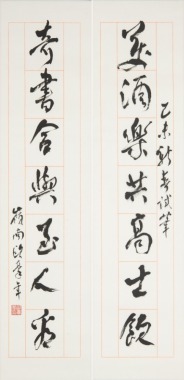 美酒樂共高士飲
乙未新春試筆
奇書合與至人看
嶺南
年